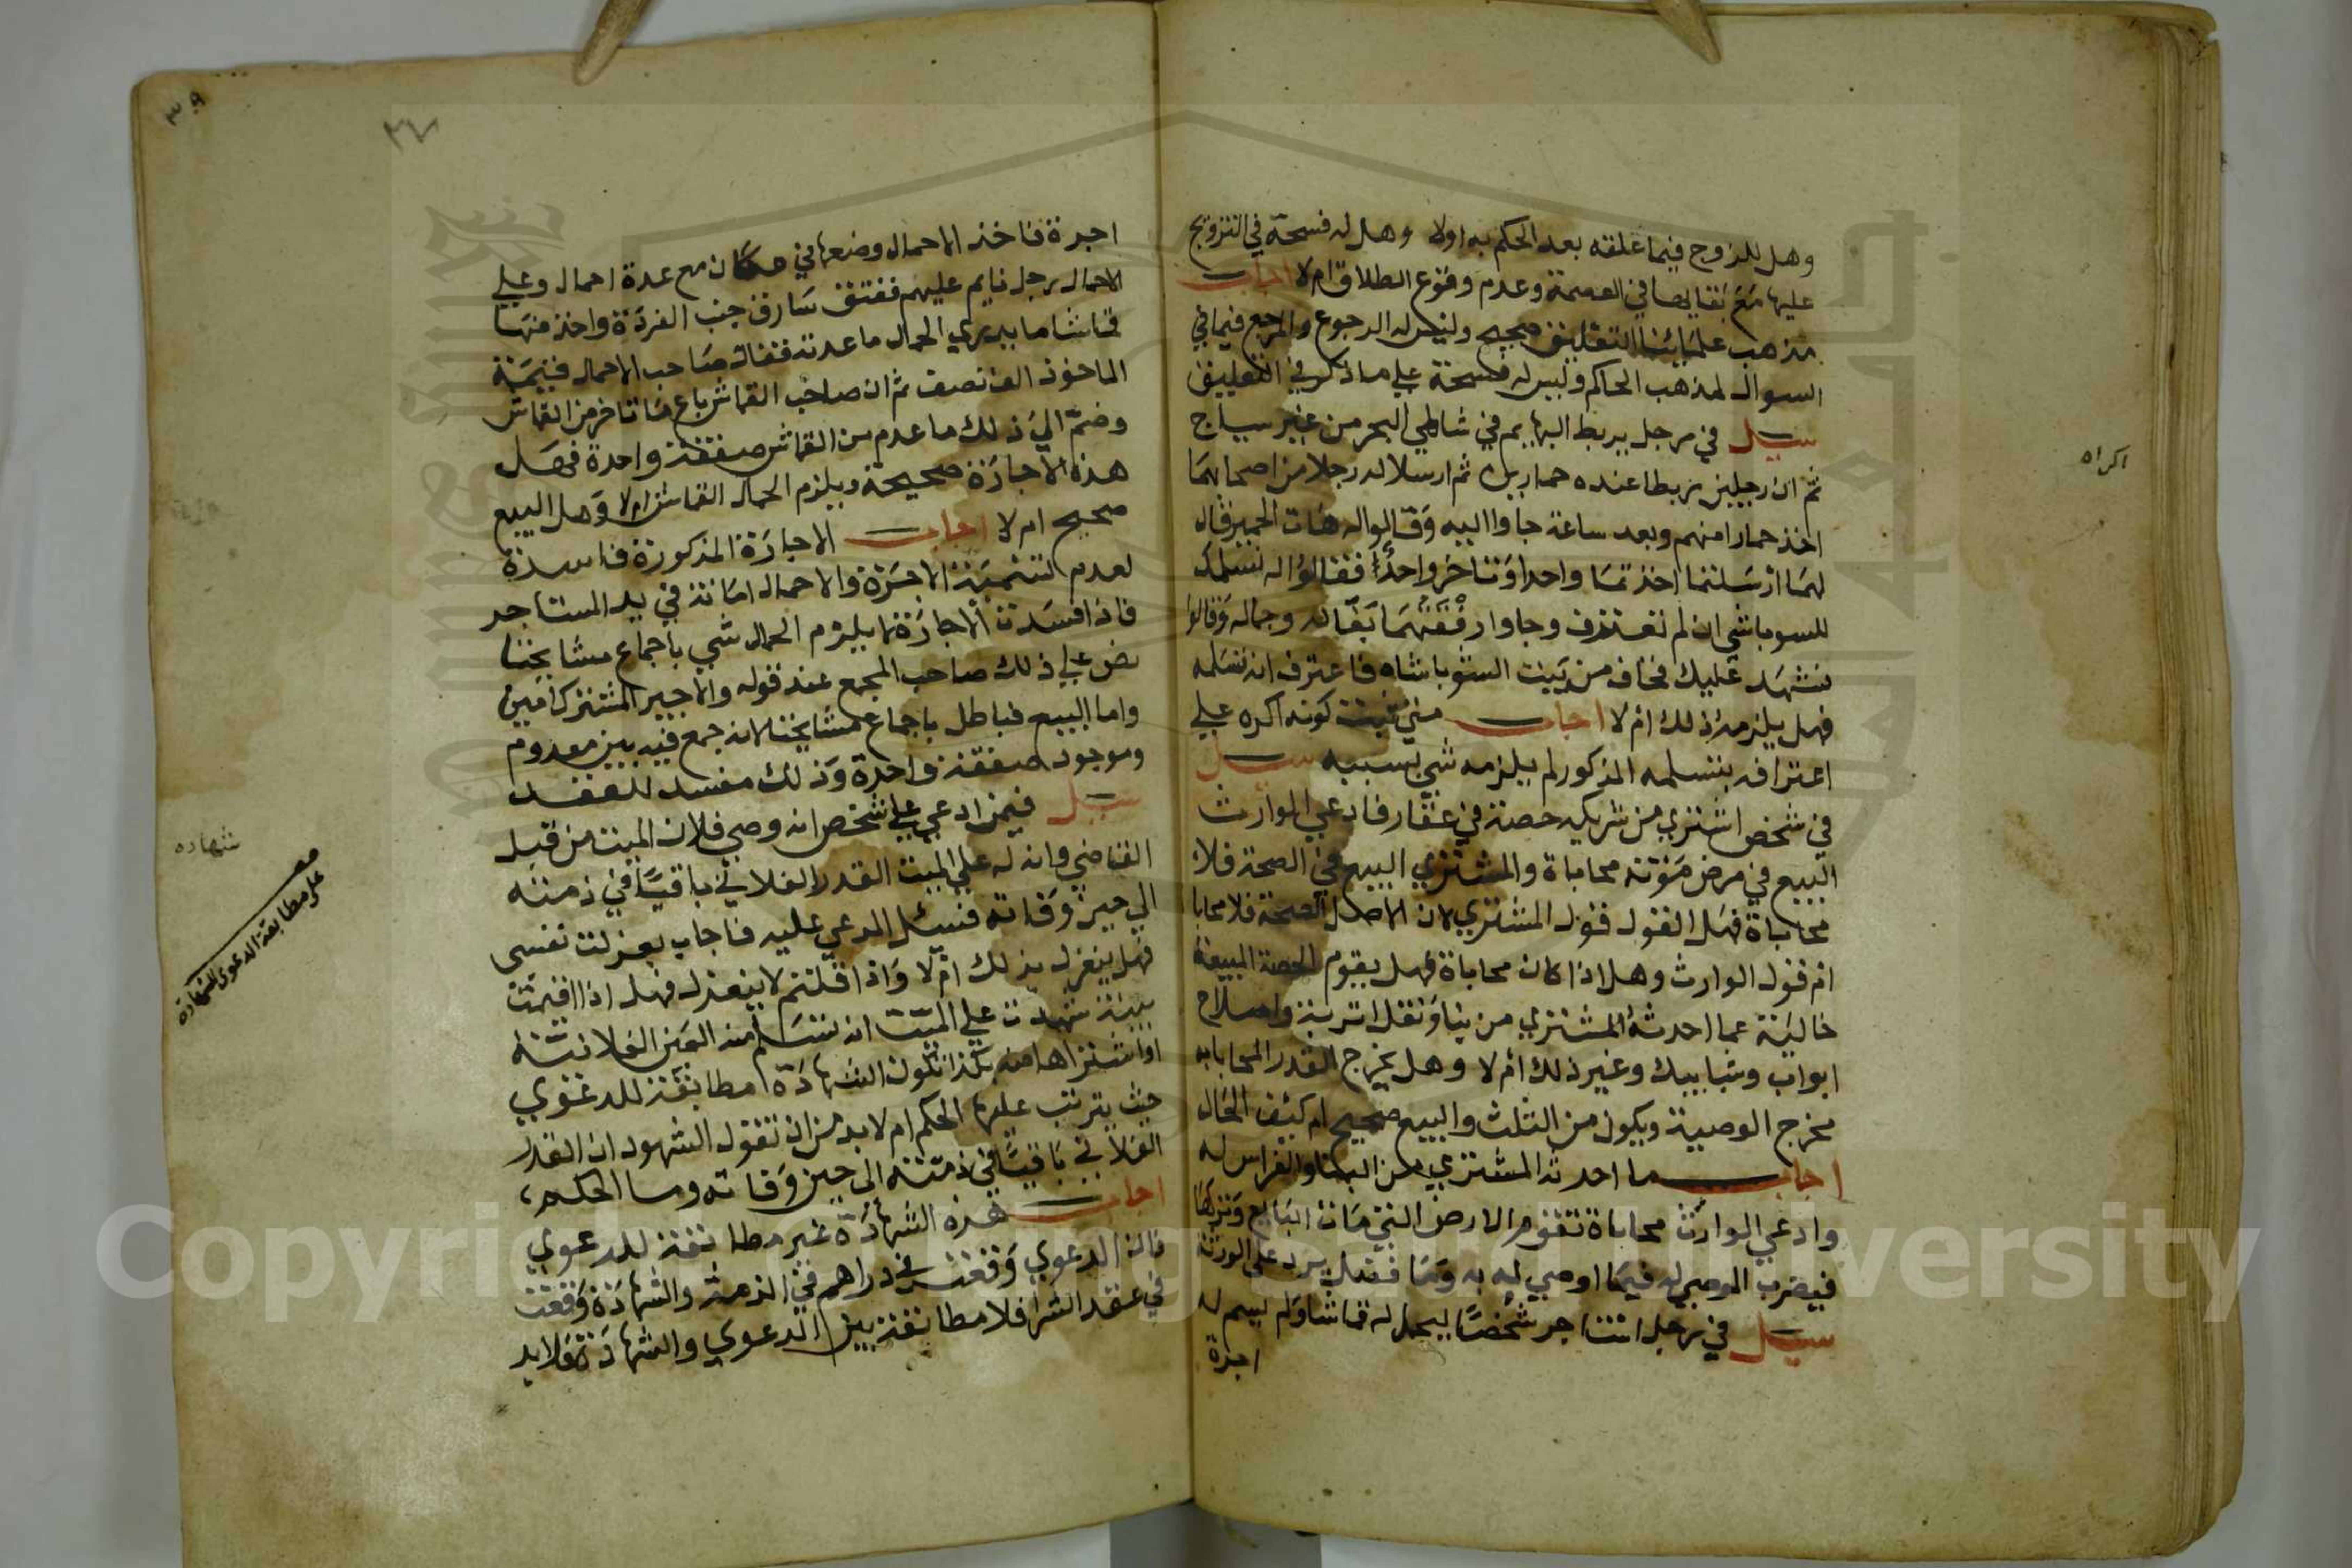 وهل للزوج فيما علقه بعد الحكم به اولا وهل له فسحة في التزويج
عليها مع بقايها في العصمة وعدم وقوع الطلاق ام لا اجاب
مذهب علمائنا التعليق صحيح وليس له الرجوع والمرجع فيما في
السوال لمذهب الحاكم وليس له فسحة علي ما ذكر في التعليق
سيل في رجل يربط البهايم في شاطي البحر من غير سياج
ثم ان رجلين ربطا عنده حمارين ثم ارسلا له رجلا من اصحابهما
اخذ حمارا منهم وبعد ساعة جاوا اليه وقالوا له هات الحمير فقال
لهما ارسلتما اخذتما واحدا وتاخر واحدا فقالوا له نسلمك
للسوباشي ان لم تعترف وجاوا رفقتهما بقاله وجماله وقالوا
نشهد عليك فخاف من بيت السوباشاه فاعترف انه تسلمه
فهل يلزمه ذلك ام لا اجاب متي ثبت كونه اكره علي
اعترافه بتسلمه المذكور لم يلزمه شي بسببه سيل
في شخص اشتري من شريكه حصة في عقار فادعي الوارث
البيع في مرض موته محاباة والمشتري البيع في الصحة فلا
محاباة فهل القول قول المشتري لان الاصل الصحة فلا محابا
ام قول الوارث وهل اذا كان محاباة فهل يقوم الحصة المبيعة
خالية عما احدثه المشتري من بنا ونقل اتربة واصلاح
ابواب وشبابيك وغير ذلك ام لا وهل يخرج القدر المحابا به
مخرج الوصية ويكون من الثلث والبيع صحيح ام كيف الحال
اجاب ما احدثه المشتري من البنا والغراس له
وادعي الوارث محاباة تقوم الارض التي مات البايع وتركها
فيضرب الموصي له فيما اوصي له به وما فضل يرد علي الورثة
سيل في رجل استاجر شخصا ليحمل له قماشا ولم يسم له
اجرة
اكراه
٣٩
٣٧
اجرة فاخذ الاحمال وضعها في مكان مع عدة احمال وعلي
الاحمال رجل نايم عليهم ففتق سارق جنب الفردة واخذ منها
قماشا ما يدري الحمال ما عدته فقال صاحب الاحمال قيمة
الماخوذ الف نصف ثم ان صاحب القماش باع ما تاخر من القماش
وضم الي ذلك ما عدم من القماش صفقة واحدة فهل
هذه الاجارة صحيحة ويلزم الحمال القماش ام لا وهل البيع
صحيح ام لا اجاب الاجارة المذكورة فاسدة
لعدم تسمية الاجرة والاحمال امانة في يد المستاجر
فاذا فسدت الاجارة لا يلزم الحمال شي باجماع مشايخنا
نص علي ذلك صاحب المجمع عند قوله والاجير المشترك امين
واما البيع فباطل باجماع مشايخنا لانه جمع فيه بين معدوم
وموجود صفقة واحدة وذلك مفسد للعقد
سيل فيمن ادعي علي شخص انه وصي فلان الميت من قبل
القاضي وانه له علي الميت القدر الفلاني باقيا في ذمته
الي حين وفاته فسئل المدعي عليه فاجاب بعزلت نفسي
فهل ينعزل بذلك ام لا واذا قلتم لا ينعزل فهل اذا اقيمت
بينة شهدت علي الميت انه تسلم منه العين الفلانية
او اشتراها منه بكذا تكون الشهادة مطابقة للدعوي
حيث يترتب عليها الحكم ام لا بد من ان تقول الشهود ان القدر
الفلاني باقيا في ذمته الي حين وفاته وما الحكم
اجاب هذه الشهادة غير مطابقة للدعوي
فان الدعوي وقعت في دراهم في الذمة والشهادة وقعت
في عقد الشرا فلا مطابقة بين الدعوي والشهادة فلا بد
شهاده
علي مطابقة الدعوي الشهادة
Copyright © King Saud University